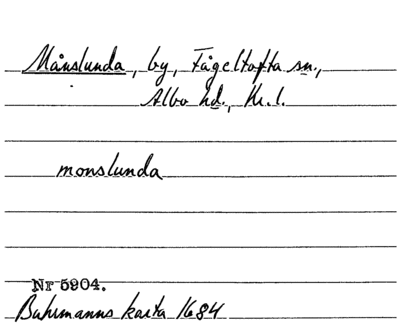 Månslunda, by, Fågeltofta sn.,
Albo hd., Kr. l.
monslunda
Nr 5904.
Buhrmanns karta 1684